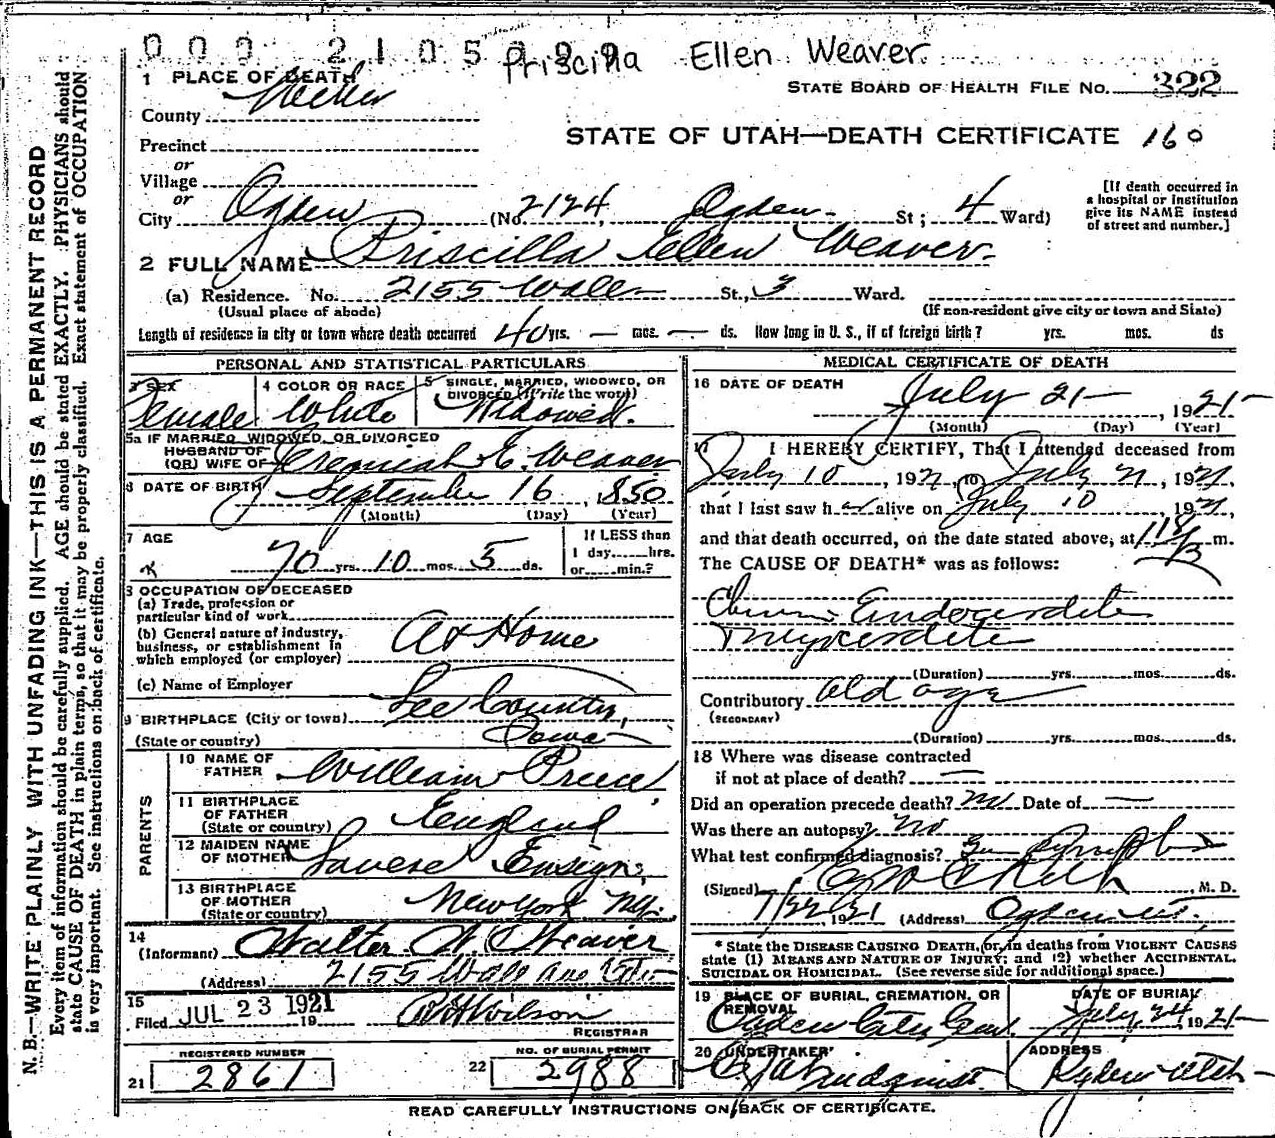 000 2105099 Priscilla Ellen Weaver
1 PLACE OF DEATH
County Weber
STATE BOARD OF HEALTH FILE NO. 322
STATE OF UTAH—DEATH CERTIFICATE 160
Precinct
or
Village
or
City Ogden (No 2124, Ogden St; 4 Ward)
[If death occurred in
a hospital or institution
give its NAME instead
of street and number.]
2 FULL NAME Priscilla Ellen Weaver.
(a) Residence. No. 2155 Wall St., 3 Ward.
(Usual place of abode) (If non-resident give city or town and State)
Length of residence in city or town where death occurred 40 yrs. — mos. — ds. How long in U. S., if of foreign birth? yrs. mos. ds
PERSONAL AND STATISTICAL PARTICULARS
3 SEX Female
4 COLOR OR RACE White
5 SINGLE, MARRIED, WIDOWED, OR
DIVORCED (Write the word)
Widowed.
5a IF MARRIED, WIDOWED, OR DIVORCED
HUSBAND OF
(OR) WIFE OF Jeremiah E. Weaver
6 DATE OF BIRTH September 16, 1850
(Month) (Day) (Year)
7 AGE
70 yrs. 10 mos. 5 ds.
If LESS than
1 day......hrs.
or......min.?
8 OCCUPATION OF DECEASED
(a) Trade, profession or
particular kind of work
(b) General nature of industry,
business, or establishment in
which employed (or employer)
At Home
(c) Name of Employer
9 BIRTHPLACE (City or town) Lee County,
(State or country) Iowa
PARENTS
10 NAME OF
FATHER William Preece
11 BIRTHPLACE
OF FATHER
(State or country) England
12 MAIDEN NAME
OF MOTHER Ensign,
13 BIRTHPLACE
OF MOTHER
(State or country) New York N.Y.
14
(Informant) Walter W. Weaver
(Address) 2155 Wall Ave
15
Filed JUL 23 1921 19 R H Wilson
REGISTRAR
REGISTERED NUMBER
21 2861
NO. OF BURIAL PERMIT
22 2988
MEDICAL CERTIFICATE OF DEATH
16 DATE OF DEATH
July 21, 1921
(Month) (Day) (Year)
17 I HEREBY CERTIFY, That I attended deceased from
July 10, 1921, to July 21, 1921,
that I last saw her alive on July 10 1921,
and that death occurred, on the date stated above, at m.
The CAUSE OF DEATH* was as follows:
Endocardite
Myocardite
(Duration) yrs. mos. ds.
Contributory old age
(SECONDARY)
(Duration) yrs. mos. ds.
18 Where was disease contracted
if not at place of death? —
Did an operation precede death? no Date of —
Was there an autopsy? no
What test confirmed diagnosis?
(Signed) M. D.
7/22 1921 (Address) Ogden Ut.
* State the DISEASE CAUSING DEATH, or, in deaths from VIOLENT CAUSES
state (1) MEANS AND NATURE OF INJURY; and (2) whether ACCIDENTAL,
SUICIDAL OR HOMICIDAL. (See reverse side for additional space.)
19 PLACE OF BURIAL, CREMATION, OR
REMOVAL
Ogden City Cem
DATE OF BURIAL
July 24, 1921
20 UNDERTAKER
Lindquist.
ADDRESS
Ogden Utah
READ CAREFULLY INSTRUCTIONS ON BACK OF CERTIFICATE.
N. B.—WRITE PLAINLY WITH UNFADING INK—THIS IS A PERMANENT RECORD
Every item of information should be carefully supplied. AGE should be stated EXACTLY. PHYSICIANS should
state CAUSE OF DEATH in plain terms, so that it may be properly classified. Exact statement of OCCUPATION
is very important. See instructions on back of certificate.